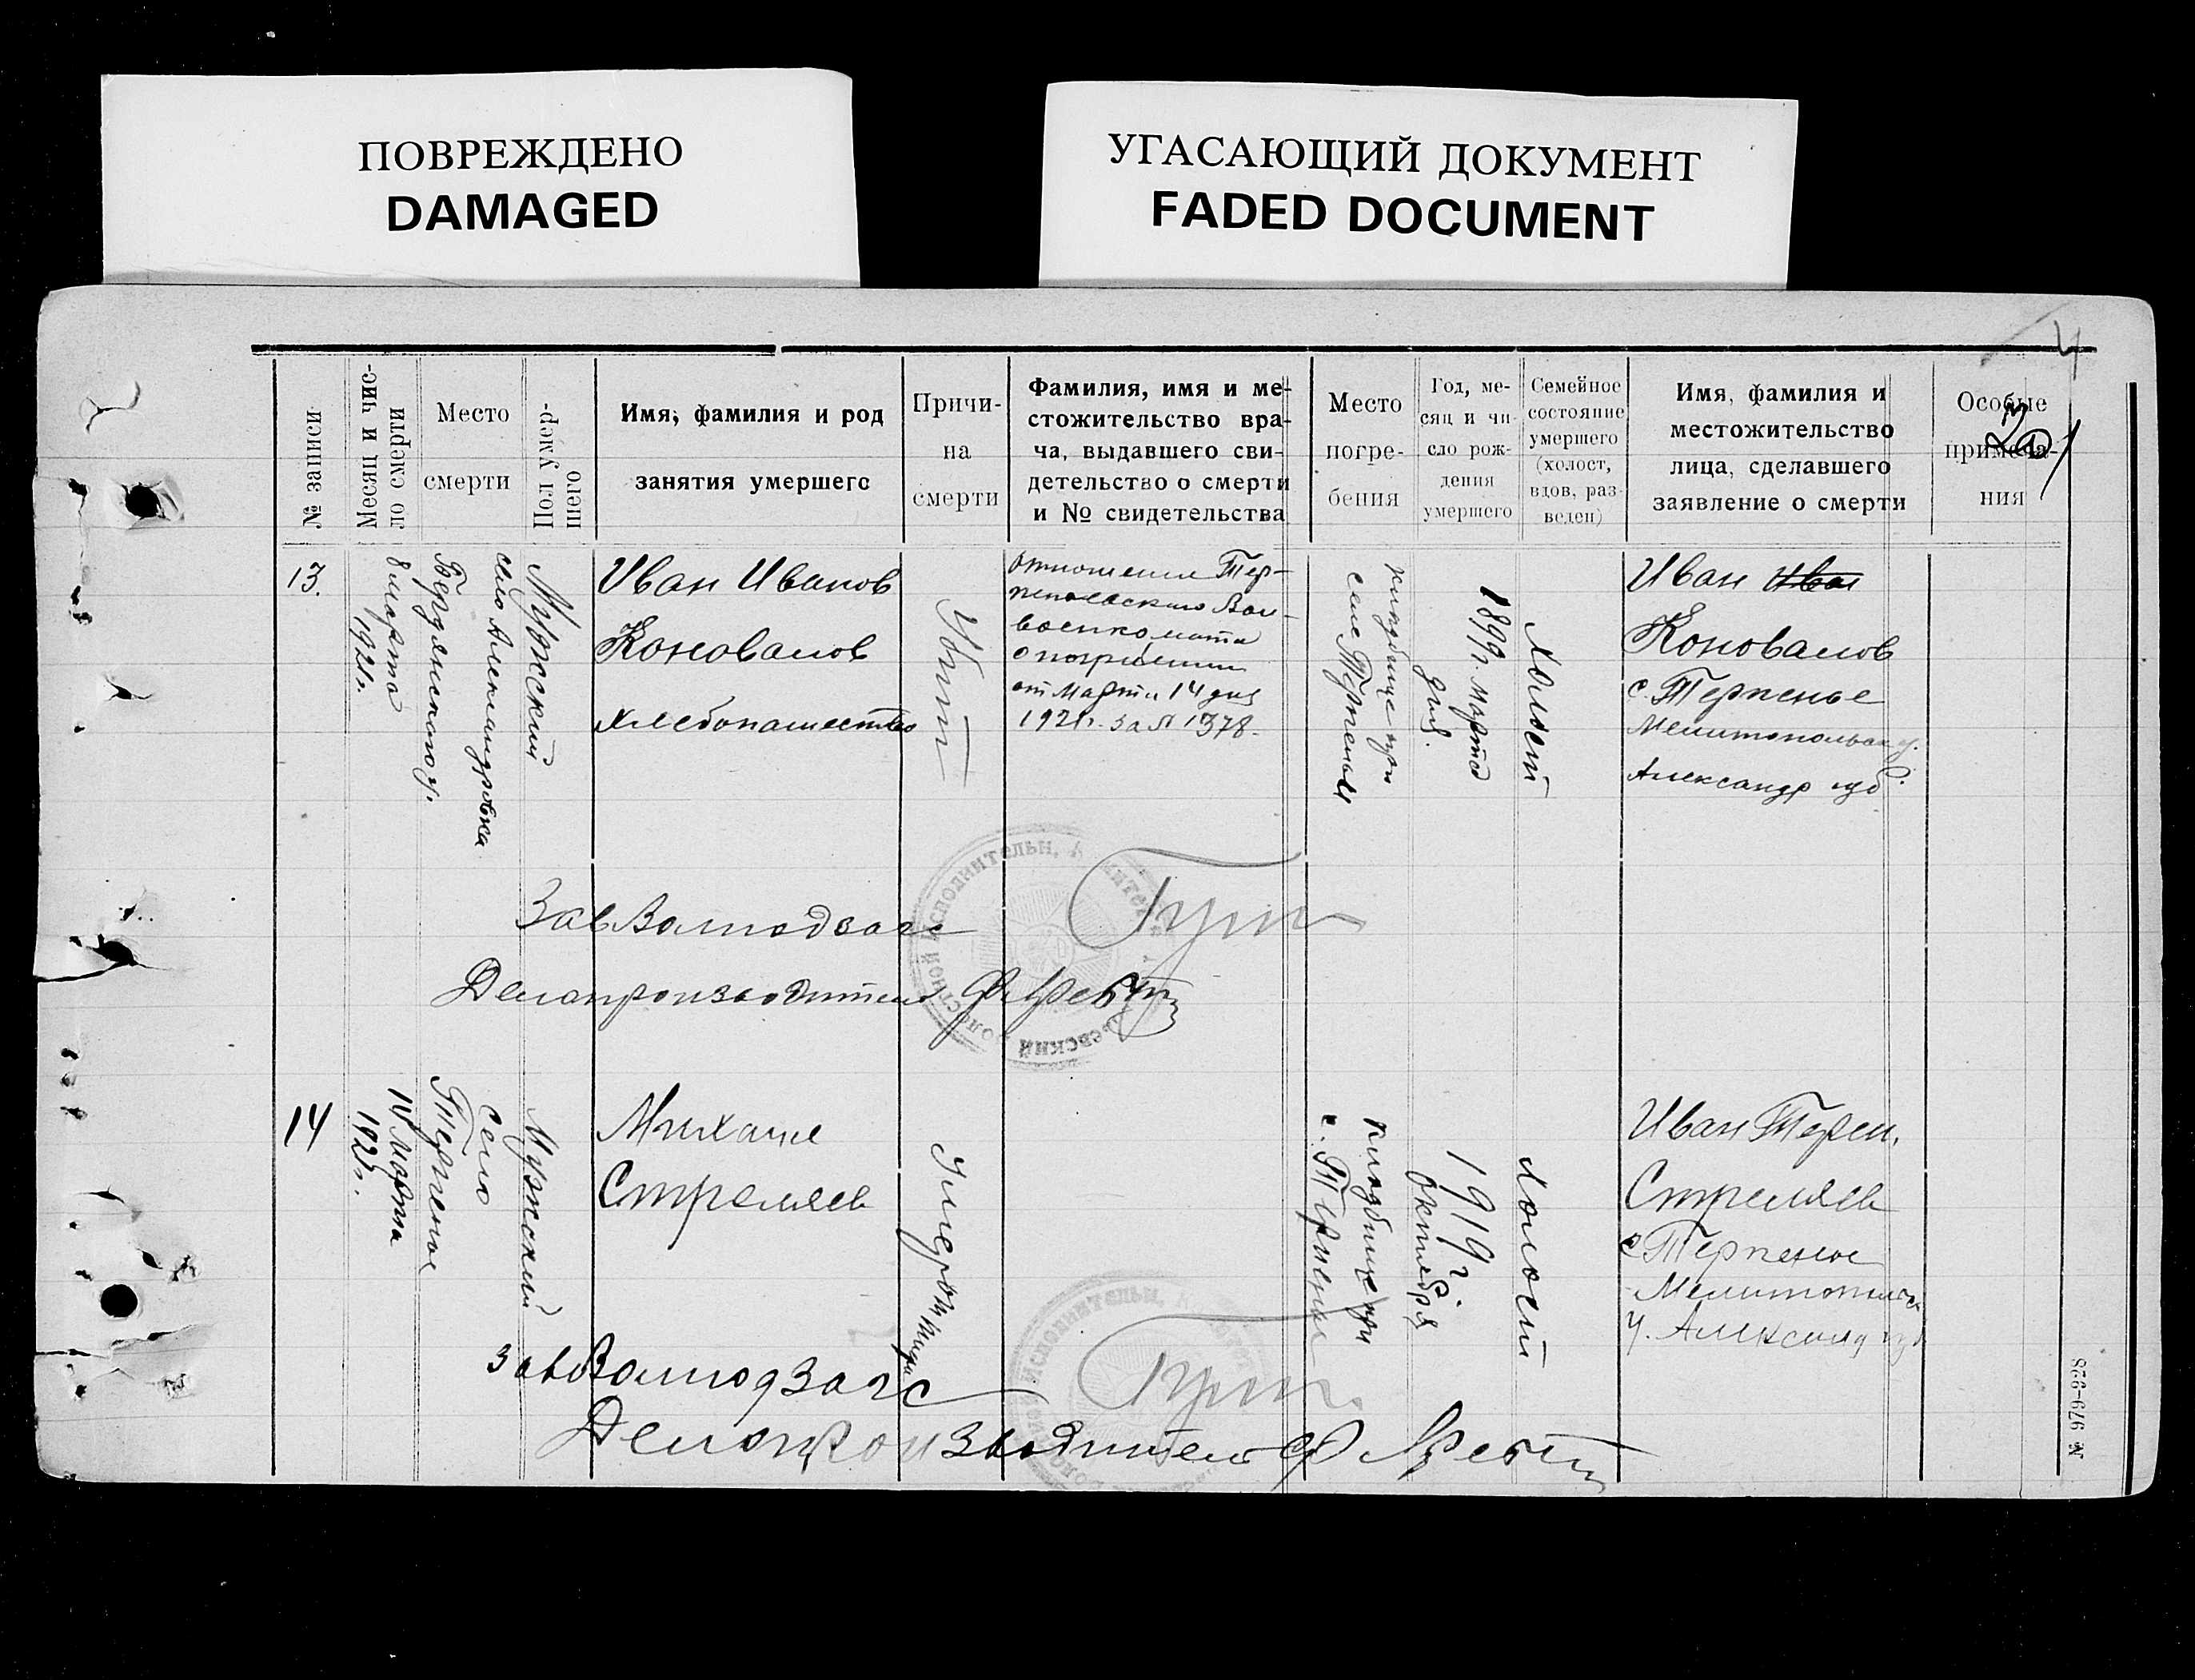 ПОВРЕЖДЕНО
DAMAGED
УГАСАЮЩИЙ ДОКУМЕНТ
FADED DOCUMENT
4
№ записи
Месяц и чис-
ло смерти
Место
смерти
Пол умер-
шего
Имя, фамилия и род
занятия умершего
Причи-
на
смерти
Фамилия, имя и ме-
стожительство вра-
ча, выдавшего сви-
детельство о смерти
и № свидетельства
Место
погре-
бения
Год, ме-
сяц и чи-
сло рож-
дения
умершего
Семейное
состояние
умершего
(холост,
вдов, раз-
веден)
Имя, фамилия и
местожительство
лица, сделавшего
заявление о смерти
Особые
примеча-
ния
13.
8 марта
1921 г.
село Александровка
Бердянского у.
Мужский
Иван Иванов
Коновалов
хлебопашество
Убит
Отношение Тер-
пеньевского Вол-
военкомата
о погребении
от Марта 14 дня
1921 г. за № 1378.
кладбище при
селе Терпеньи
1899 г. марта
дня.
Холост
Иван Иван
Коновалов
с. Терпенье
Мелитопольск у.
Александр губ.
ЗавВолподзагс
Делопроизводитель
14
14 Марта
1921 г.
Село
Терпенье
Мужский
Михаил
Стреляев
Умер от
кладбище при
с. Терпенье
1919 г.
Октября
Холост
Иван Терен.
Стреляев
с Терпенье
Мелитопольск
у. Александ губ
завВолподзагс
Делопроизводитель
№ 979-928